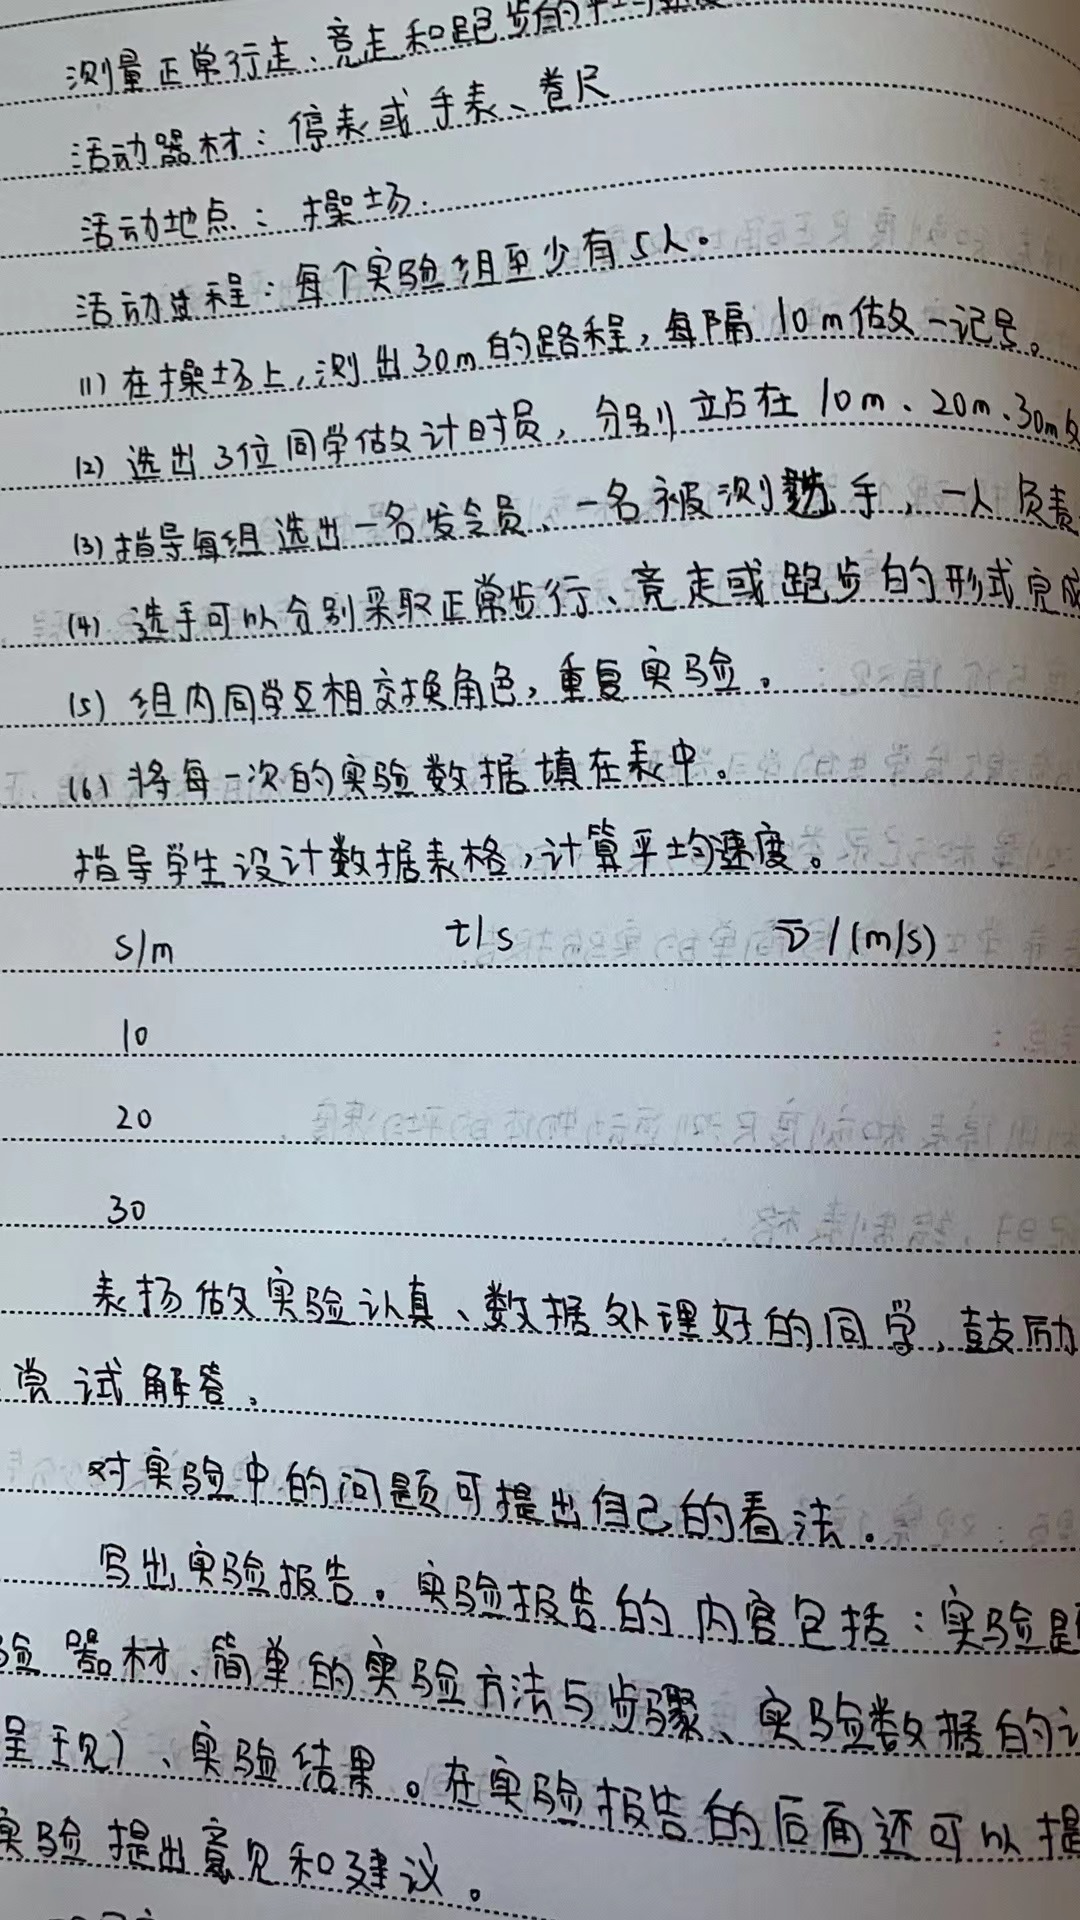 测量正常行走、竞走和跑步的平均速度
活动器材：停表或手表、卷尺
活动地点：操场.
活动过程：每个实验组至少有5人。
(1) 在操场上,测出30m的路程,每隔10m做一记号。
(2) 选出3位同学做计时员,分别立占在10m、20m、30m
(3) 指导每组选出一名发令员、一名被测选手,一人负责
(4) 选手可以分别采取正常步行、竞走或跑步的形式完成
(5) 组内同学互相交换角色,重复实验。
(6) 将每一次的实验数据填在表中。
指导学生设计数据表格,计算平均速度。
s/m t/s v̅/(m/s)
10
20
30
表扬做实验认真、数据处理好的同学,鼓励
尝试解答。
对实验中的问题可提出自己的看法。
写出实验报告。实验报告的内容包括：实验
验器材、简单的实验方法与步骤、实验数据的
呈现)、实验结果。在实验报告的后面还可以提
实验提出意见和建议。